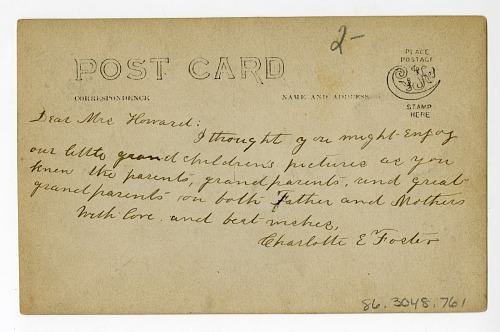 2-
POST CARD
PLACE
POSTAGE
STAMP
HERE
CORRESPONDENCE
NAME AND ADDRESS
Dear Mrs Howard:
I thought you might enjoy
our little grand children's pictures as you
knew the parents, grandparents, and great-
grandparents on both Father and Mothers
With love and best wishes,
Charlotte E Foster
86.3048.761